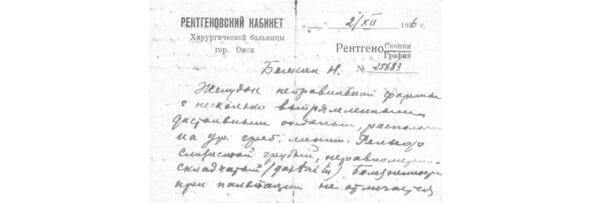 РЕНТГЕНОВСКИЙ КАБИНЕТ
Хирургической больницы
гор. Омск
2/XII 1936 г.
Рентгено Скопия
Графия
№ 25683
Н.
Желудок неправильной формы
с несколько выпрямленным
отделом, располож
на ур. греб. линии. Рельеф
слизистой грубый, неравномерно
складчатый (gastrit). Болезненность
при пальпации не отмечается